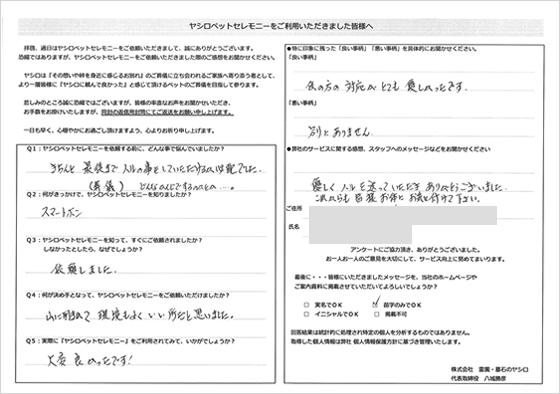 ヤシロペットセレモニーをご利用いただきました皆様へ
拝啓、過日はヤシロペットセレモニーをご依頼いただきまして、誠にありがとうございます。
恐縮ではありますが、ヤシロペットセレモニーをご依頼いただきました際のご感想をお聞かせください。
ヤシロは「その想いや絆を身近に感じるお別れ」のご葬儀に立ち会われるご家族へ寄り添う者として、
より一層皆様に「ヤシロに頼んで良かった」と感じて頂けるペットのご葬儀を目指して参ります。
悲しみのところ誠に恐縮ではございますが、皆様の率直なお声をお聞かせいただき、
お手数をお掛けいたしますが、同封の返信用封筒にてご返送をお願い申し上げます。
一日も早く、心穏やかにお過ごし頂けますよう、心よりお祈り申し上げます。
Q1:ヤシロペットセレモニーを依頼する前に、どんな事で悩んでいましたか?
きちんと最後まで
(葬儀)
Q2:何がきっかけで、ヤシロペットセレモニーを知りましたか?
スマートホン
Q3:ヤシロペットセレモニーを知って、すぐにご依頼されましたか?
しなかったとしたら、なぜでしょうか?
依頼しました。
Q4:何が決め手となって、ヤシロペットセレモニーをご依頼いただけましたか?
山に囲まれて環境もよくいい所だと思いました。
Q5:実際に「ヤシロペットセレモニー」をご利用されてみて、いかがでしょうか?
大変良かったです!
●特に印象に残った「良い事柄」「悪い事柄」を具体的にお聞かせください。
「良い事柄」
係の方の対応がとても優しかったです。
「悪い事柄」
別にありません
●弊社のサービスに関する感想、スタッフへのメッセージなどをお聞かせください。
優しく 送っていただき ありがとうございました。
これからも皆様お体にお気を付けて下さい。
ご住所
氏名
アンケートにご協力頂き、ありがとうございました。
お一人お一人のご意見を大切にして、サービス向上に努めてまいります。
最後に・・・皆様にいただきましたメッセージを、当社のホームページや
ご案内資料に掲載させていただいてよろしいでしょうか?
□ 実名でOK ☑ 苗字のみでOK
□ イニシャルでOK □ 掲載不可
回答結果は統計的に処理され特定の個人を分析するものではありません。
取得した個人情報は弊社 個人情報保護方針に基づき管理いたします。
株式会社 霊園・墓石のヤシロ
代表取締役 八城勝彦